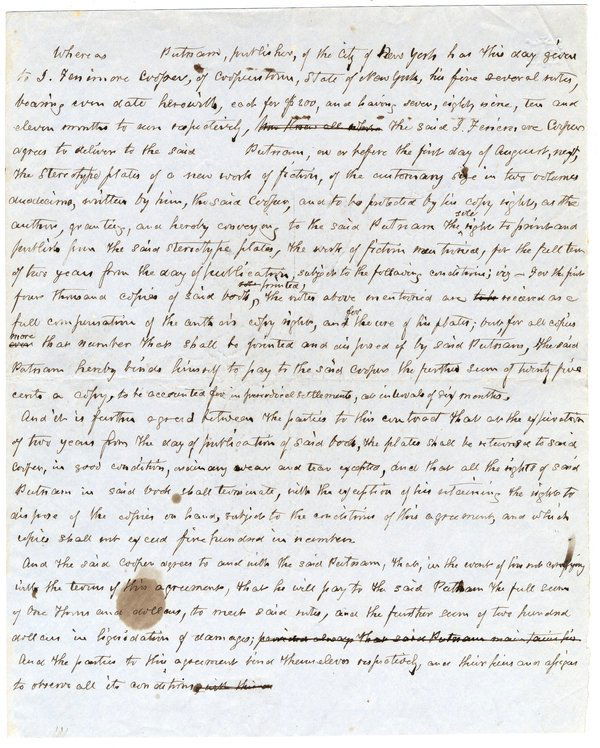 Whereas Putnam, publisher, of the City of New York has this day given
to J. Fenimore Cooper, of Cooperstown, State of New York, his five several notes,
bearing even date herewith, each for $200, and having seven, eight, nine, ten and
eleven months to run respectively, the said J. Fenimore Cooper
agrees to deliver to the said Putnam, on or before the first day of August, next,
the stereotype plates of a new work of fiction, of the customary size in two volumes
duodecimo, written by him, the said Cooper, and to be protected by his copy right, as the
author, granting, and hereby conveying to the said Putnam the sole right to print and
publish from the said stereotype plates, the work of fiction mentioned, for the full term
of two years from the day of publication, subject to the following conditions; viz – For the first
four thousand copies of said book, printed, the notes above mentioned are received as a
full compensation of the author's copy right, and for the use of his plates; but for all copies
more that number that shall be printed and disposed of by said Putnam, the said
Putnam hereby binds himself to pay to the said Cooper the further sum of twenty five
cents a copy, to be accounted for in periodical settlements, at intervals of six months.
And it is further agreed between the parties to this contract that at the expiration
of two years from the day of publication of said book, the plates shall be returned to said
Cooper, in good condition, ordinary wear and tear excepted, and that all the rights of said
Putnam in said book shall terminate, with the exception of his retaining the right to
dispose of the copies on hand, subject to the conditions of this agreement, and which
copies shall not exceed five hundred in number.
And the said Cooper agrees to and with the said Putnam, that, in the event of his not complying
with the terms of this agreement, that he will pay to the said Putnam the full sum
of One thousand dollars, to meet said notes, and the further sum of two hundred
dollars in liquidation of damages; provided always that said Putnam
And the parties to this agreement bind themselves respectively, and their heirs and assigns
to observe all its conditions